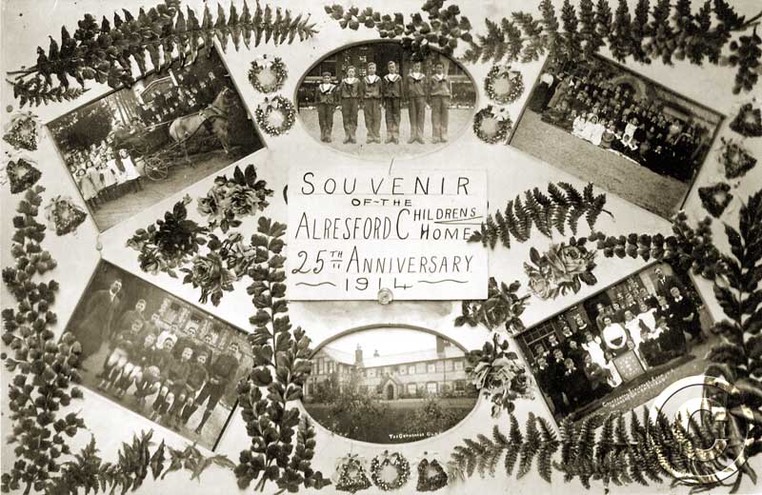 SOUVENIR
OF-THE
ALRESFORD CHILDRENS HOME
25TH ANNIVERSARY
1914